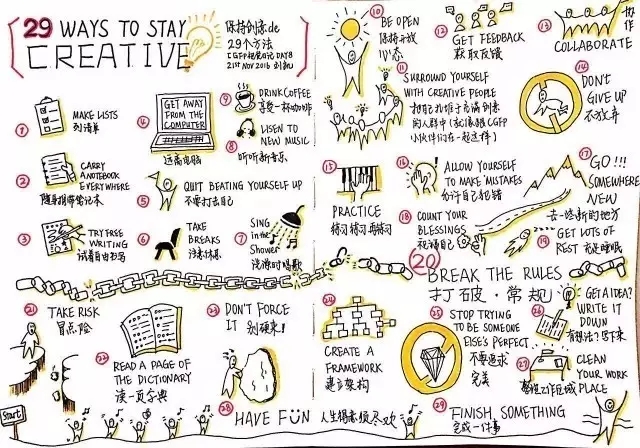 29 WAYS TO STAY
CREATIVE
保持创意de
29个方法
21ST NOV 2016
①
MAKE LISTS
列清单
②
CARRY
A NOTEBOOK
EVERYWHERE
随身携带笔记本
③
TRY FREE
WRITING
试着自由书写
④
GET AWAY
FROM THE
COMPUTER
远离电脑
⑤
QUIT BEATING YOURSELF UP
不要打击自己
⑥
TAKE
BREAKS
注意休息
⑦
SING
IN the
Shower
洗澡时唱歌
⑨
DRINK COFFEE
享受一杯咖啡
⑧
LISEN TO
NEW MUSIC
听听新音乐
⑩
BE OPEN
保持开放
心态
⑪
SURROUND YOURSELF
WITH CREATIVE PEOPLE
⑫
GET FEEDBACK
获取反馈
⑬
COLLABORATE
协作
⑭
DON'T
GIVE UP
不放弃
⑮
PRACTICE
练习 练习 再练习
⑯
ALLOW YOURSELF
TO MAKE MISTAKES
允许自己犯错
⑰
GO!!!
SOMEWHERE
NEW
去一些新的地方
⑱
COUNT YOUR
BLESSINGS
祝福自己
⑲
GET LOTS OF
REST 充足睡眠
⑳
BREAK THE RULES
打破·常规
㉑
TAKE RISK
冒点险
㉒
READ A PAGE OF
THE DICTIONARY
读一页字典
㉓
DON'T FORCE
IT 别硬来!
㉔
CREATE A
FRAMEWORK
建立架构
㉕
STOP TRYING
TO BE SOMEONE
ELSE'S PERFECT
不要追求
完美
㉖
GET AIDEA?
WRITE IT
DOWN
有想法?写下来
㉗
CLEAN
YOUR WORK
PLACE
整理工作区域
㉘
HAVE FUN 人生得意须尽欢
㉙
FINISH, SOMETHING
完成一件事
Start